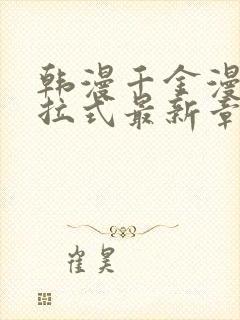 韩漫千金漫
拉式最新章
崔昊